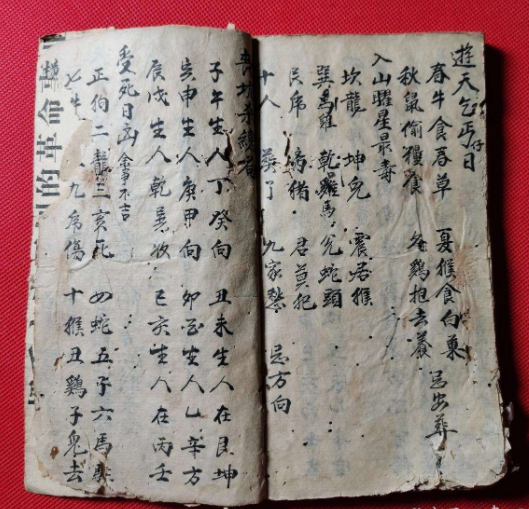 遊天乞丐仔日
春牛食春草 夏猴食白菓
秋鼠偷糧食 冬鷄抱去藏 忌安葬
入山曜星最毒
坎龍 坤兔 震居猴
巽鳥雞 乾馬 兌蛇頭
艮虎 猪 君莫犯
十人 葵了 九家愁 忌方向
喪 杀
子午生人丁癸向 丑未生人在艮坤
亥申生人庚甲向 卯酉生人乙辛方
辰戌生人乾巽 巳亥生人在丙壬
受死日凶 全事不吉
正 二龍三亥死 四蛇五子六馬
七牛 九虎傷 十猴丑鷄子兔去
的革命